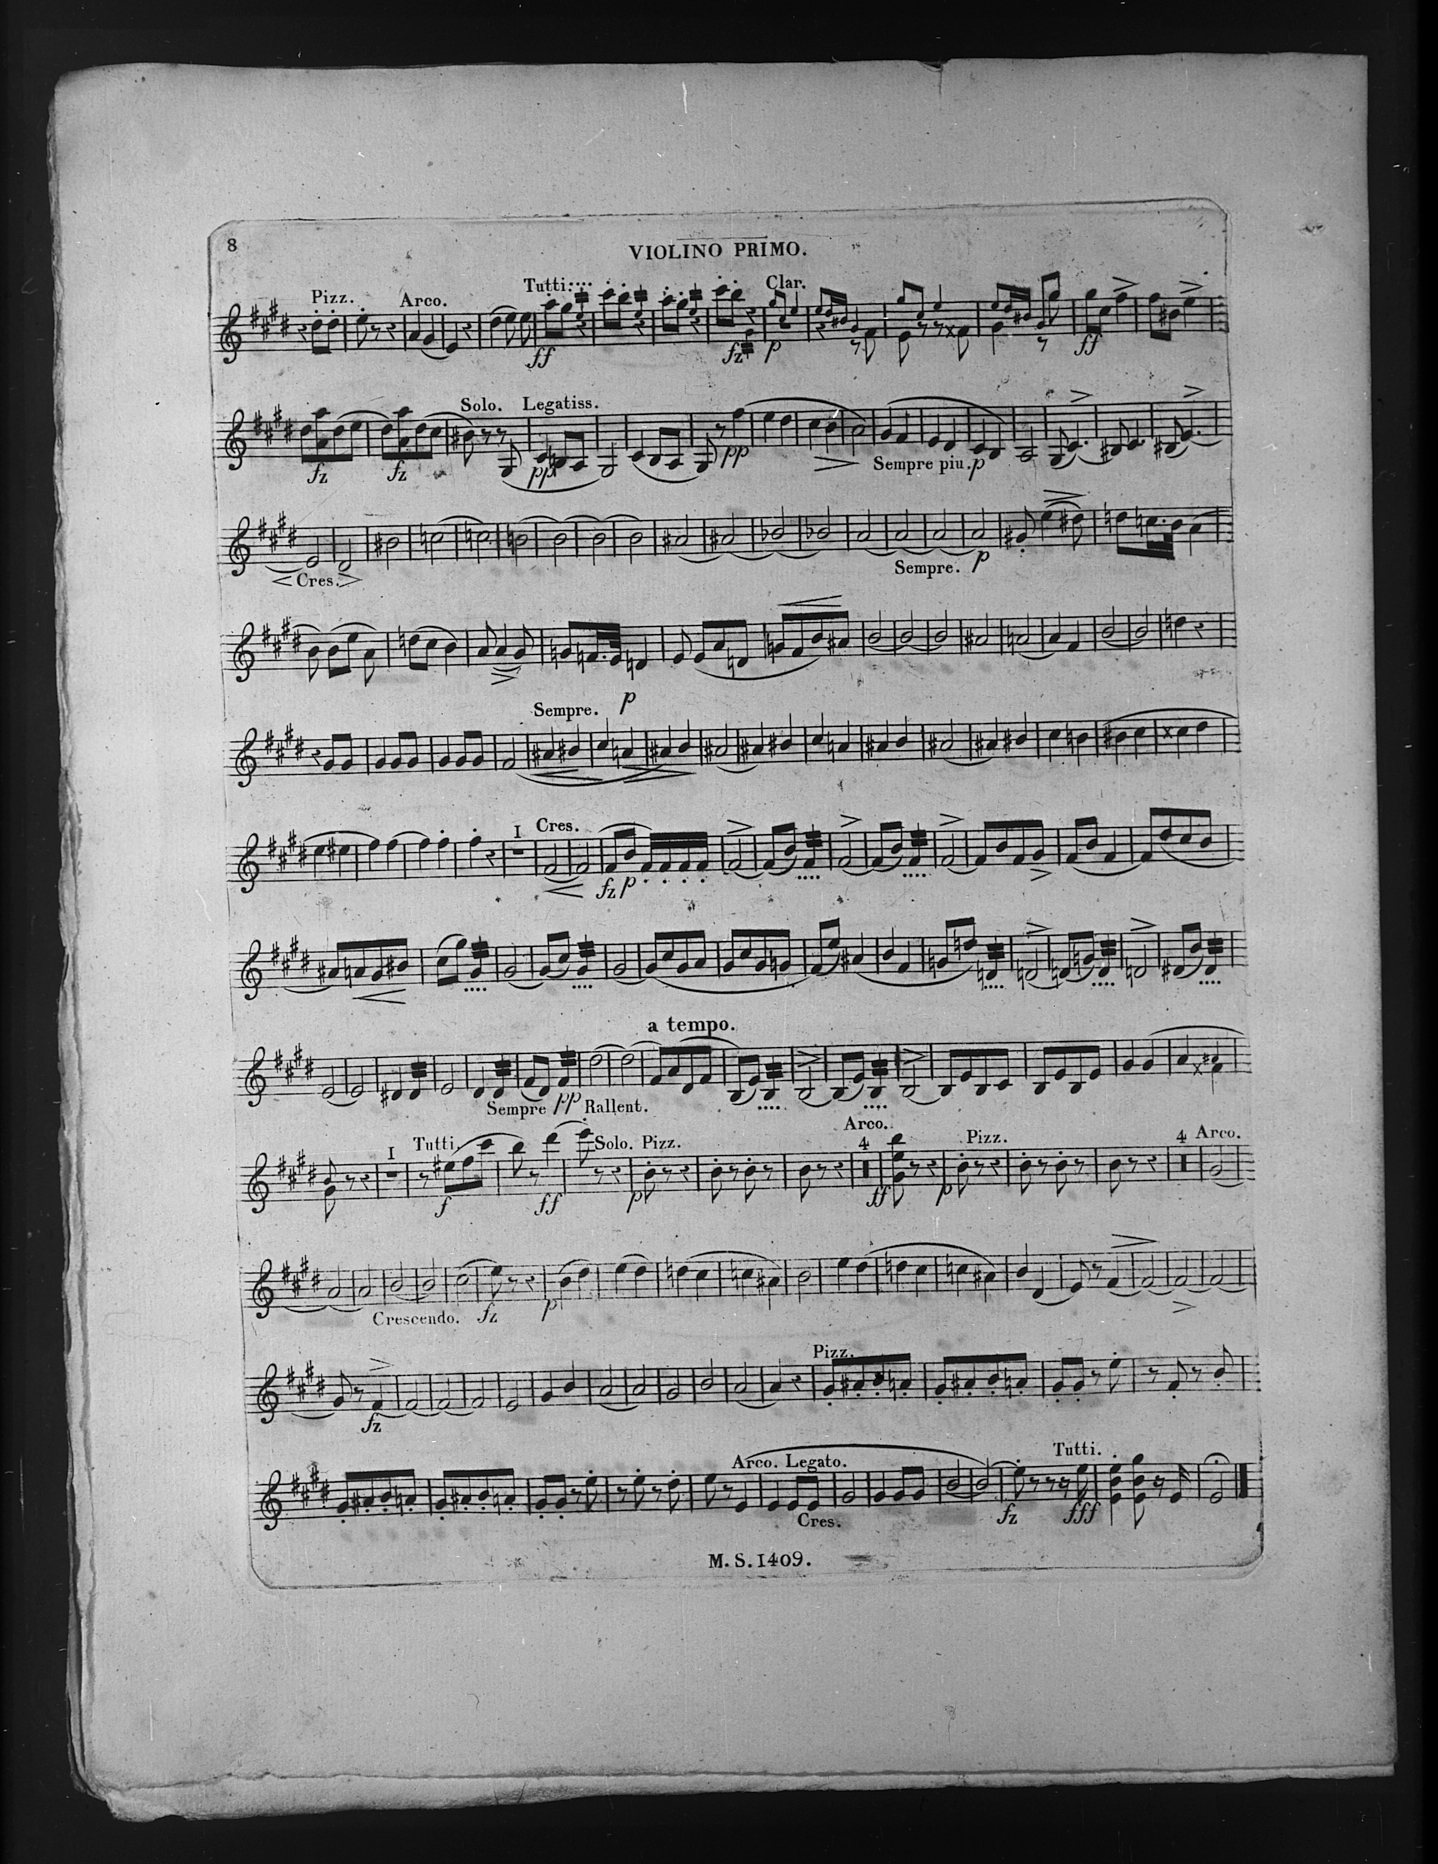 8
VIOLINO PRIMO.
Pizz. Arco. Tutti: Clar.
ff fz p ff
Solo. Legatiss.
fz fz pp pp Sempre piu. p
Cres. Sempre. p
p
Sempre.
I Cres.
fz p
a tempo.
Sempre pp Rallent.
I Tutti. Solo. Pizz. Arco. 4 Pizz. 4 Arco.
f ff p ff p
Crescendo. fz p
Pizz.
fz
Arco. Legato. Tutti.
Cres. fz fff
M. S. 1409.